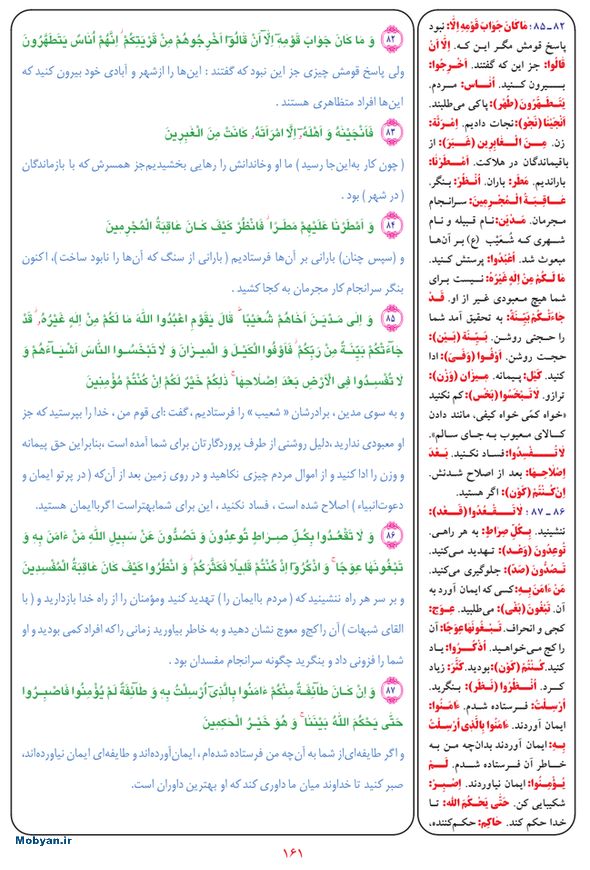 ۸۲ وَ مَا كَانَ جَوَابَ قَوْمِهٖٓ اِلَّآ اَنْ قَالُوٓا اَخْرِجُوهُمْ مِنْ قَرْيَتِكُمْ ۖ اِنَّهُمْ اُنَاسٌ يَتَطَهَّرُونَ
ولی پاسخ قومش چیزی جز این نبود که گفتند : این‌ها را ازشهر و آبادی خود بیرون کنید که
این‌ها افراد متظاهری هستند .
۸۳ فَاَنْجَيْنٰهُ وَ اَهْلَهُٓ اِلَّا امْرَاَتَهُ كَانَتْ مِنَ الْغٰبِرِينَ
( چون کار به‌این‌جا رسید ) ما او وخاندانش را رهایی بخشیدیم‌جز همسرش که با بازماندگان
( در شهر ) بود .
۸۴ وَ اَمْطَرْنَا عَلَيْهِمْ مَطَرًا ۖ فَانْظُرْ كَيْفَ كَانَ عَاقِبَةُ الْمُجْرِمِينَ
و (سپس چنان) بارانی بر آن‌ها فرستادیم ( بارانی از سنگ که آن‌ها را نابود ساخت)، اکنون
بنگر سرانجام کار مجرمان به کجا کشید .
۸۵ وَ اِلٰى مَدْيَنَ اَخَاهُمْ شُعَيْبًا ۗ قَالَ يٰقَوْمِ اعْبُدُوا اللّٰهَ مَا لَكُمْ مِنْ اِلٰهٍ غَيْرُهُ ۖ قَدْ
جَآءَتْكُمْ بَيِّنَةٌ مِنْ رَبِّكُمْ ۖ فَاَوْفُوا الْكَيْلَ وَ الْمِيزَانَ وَ لَا تَبْخَسُوا النَّاسَ اَشْيَآءَهُمْ وَ
لَا تُفْسِدُوا فِى الْاَرْضِ بَعْدَ اِصْلَاحِهَا ۚ ذٰلِكُمْ خَيْرٌ لَكُمْ اِنْ كُنْتُمْ مُؤْمِنِينَ
و به سوی مدین ، برادرشان « شعیب » را فرستادیم ، گفت :ای قوم من ، خدا را بپرستید که جز
او معبودی ندارید ،دلیل روشنی از طرف پروردگارتان برای شما آمده است ،بنابراین حق پیمانه
و وزن را ادا کنید و از اموال مردم چیزی نکاهید و در روی زمین بعد از آن‌که ( در پرتو ایمان و
دعوت‌انبیاء ) اصلاح شده است ، فساد نکنید ، این برای شمابهتراست اگرباایمان هستید.
۸۶ وَ لَا تَقْعُدُوا بِكُلِّ صِرَاطٍ تُوعِدُونَ وَ تَصُدُّونَ عَنْ سَبِيلِ اللّٰهِ مَنْ ءَامَنَ بِهٖ وَ
تَبْغُونَهَا عِوَجًا ۚ وَ اذْكُرُوٓا اِذْ كُنْتُمْ قَلِيلًا فَكَثَّرَكُمْ ۖ وَ انْظُرُوا كَيْفَ كَانَ عَاقِبَةُ الْمُفْسِدِينَ
و بر سر هر راه ننشینید که ( مردم باایمان را ) تهدید کنید ومؤمنان را از راه خدا بازدارید و ( با
القای شبهات ) آن را کج‌و معوج نشان دهید و به خاطر بیاورید زمانی را که افراد کمی بودید و او
شما را فزونی داد و بنگرید چگونه سرانجام مفسدان بود .
۸۷ وَ اِنْ كَانَ طَآئِفَةٌ مِنْكُمْ ءَامَنُوا بِالَّذِىٓ اُرْسِلْتُ بِهٖ وَ طَآئِفَةٌ لَمْ يُؤْمِنُوا فَاصْبِرُوا
حَتّٰى يَحْكُمَ اللّٰهُ بَيْنَنَا ۚ وَ هُوَ خَيْرُ الْحٰكِمِينَ
و اگر طایفه‌ای‌از شما به آن‌چه من فرستاده شده‌ام ، ایمان‌آورده‌اند و طایفه‌ای ایمان نیاورده‌اند،
صبر کنید تا خداوند میان ما داوری کند که او بهترین داوران است.
۸۲ ـ ۸۵ : مَا كَانَ جَوَابَ قَوْمِهٖ اِلَّا: نبود
پاسخ قومش مگر این که. اِلَّا اَنْ
قَالُوا: جز این که گفتند. اَخْرِجُوا:
بیرون کنید. اُنَاس: مردم.
يَتَطَهَّرُونَ (طَهُر): پاکی می‌طلبند.
اَنْجَيْنَا (نَجَو): نجات دادیم. اِمْرَئَة:
زن. مِنَ الْغَابِرِينَ (غَبَرَ): از
باقیماندگان در هلاکت. اَمْطَرْنَا:
باراندیم. مَطَر: باران. اُنْظُرْ: بنگر.
عَاقِبَةُ الْمُجْرِمِين: سرانجام
مجرمان. مَدْيَن: نام قبیله و نام
شهری که شُعَیْب (ع) بر آن‌ها
مبعوث شد. اُعْبُدُوا: پرستش کنید.
مَا لَكُمْ مِنْ اِلٰهٍ غَيْرُه: نیست برای
شما هیچ معبودی غیر از او. قَدْ
جَاءَتْكُمْ بَيِّنَة: به تحقیق آمد شما
را حجتی روشن. بَيِّنَة (بَيْن):
حجت روشن. اَوْفُوا (وَفْى): ادا
کنید. كَيْل: پیمانه. مِيزَان (وَزْن):
ترازو. لَا تَبْخَسُوا (بَخْس): کم نکنید
«خواه کمّی خواه کیفی، مانند دادن
کالای معیوب به جای سالم».
لَا تُفْسِدُوا: فساد نکنید. بَعْدَ
اِصْلَاحِهَا: بعد از اصلاح شدنش.
اِنْ كُنْتُمْ (كَوْن): اگر هستید.
۸۶ ـ ۸۷ : لَا تَقْعُدُوا (قَعَد):
ننشینید. بِكُلِّ صِرَاط: به هر راهی.
تُوعِدُونَ (وَعْد): تهدید می‌کنید.
تَصُدُّونَ (صَدّ): جلوگیری می‌کنید.
مَنْ ءَامَنَ بِه: کسی که ایمان آورد به
آن. تَبْغُونَ (بَغْى): می‌طلبید. عِوَج:
کجی و انحراف. تَبْغُونَهَا عِوَجًا: آن
را کج می‌خواهید. اُذْكُرُوا: یاد
کنید. كُنْتُمْ (كَوْن): بودید. كَثَّرَ: زیاد
کرد. اُنْظُرُوا (نَظَر): بنگرید.
اُرْسِلْتُ: فرستاده شدم. ءَامَنُوا:
ایمان آوردند. ءَامَنُوا بِالَّذِى اُرْسِلْتُ
بِه: ایمان آوردند بدان‌چه من به
خاطر آن فرستاده شدم. لَمْ
يُؤْمِنُوا: ایمان نیاوردند. اِصْبِرْ:
شکیبایی کن. حَتّٰى يَحْكُمَ الله: تا
خدا حکم کند. حَاكِم: حکم‌کننده،
Mobyan.ir
۱۶۱